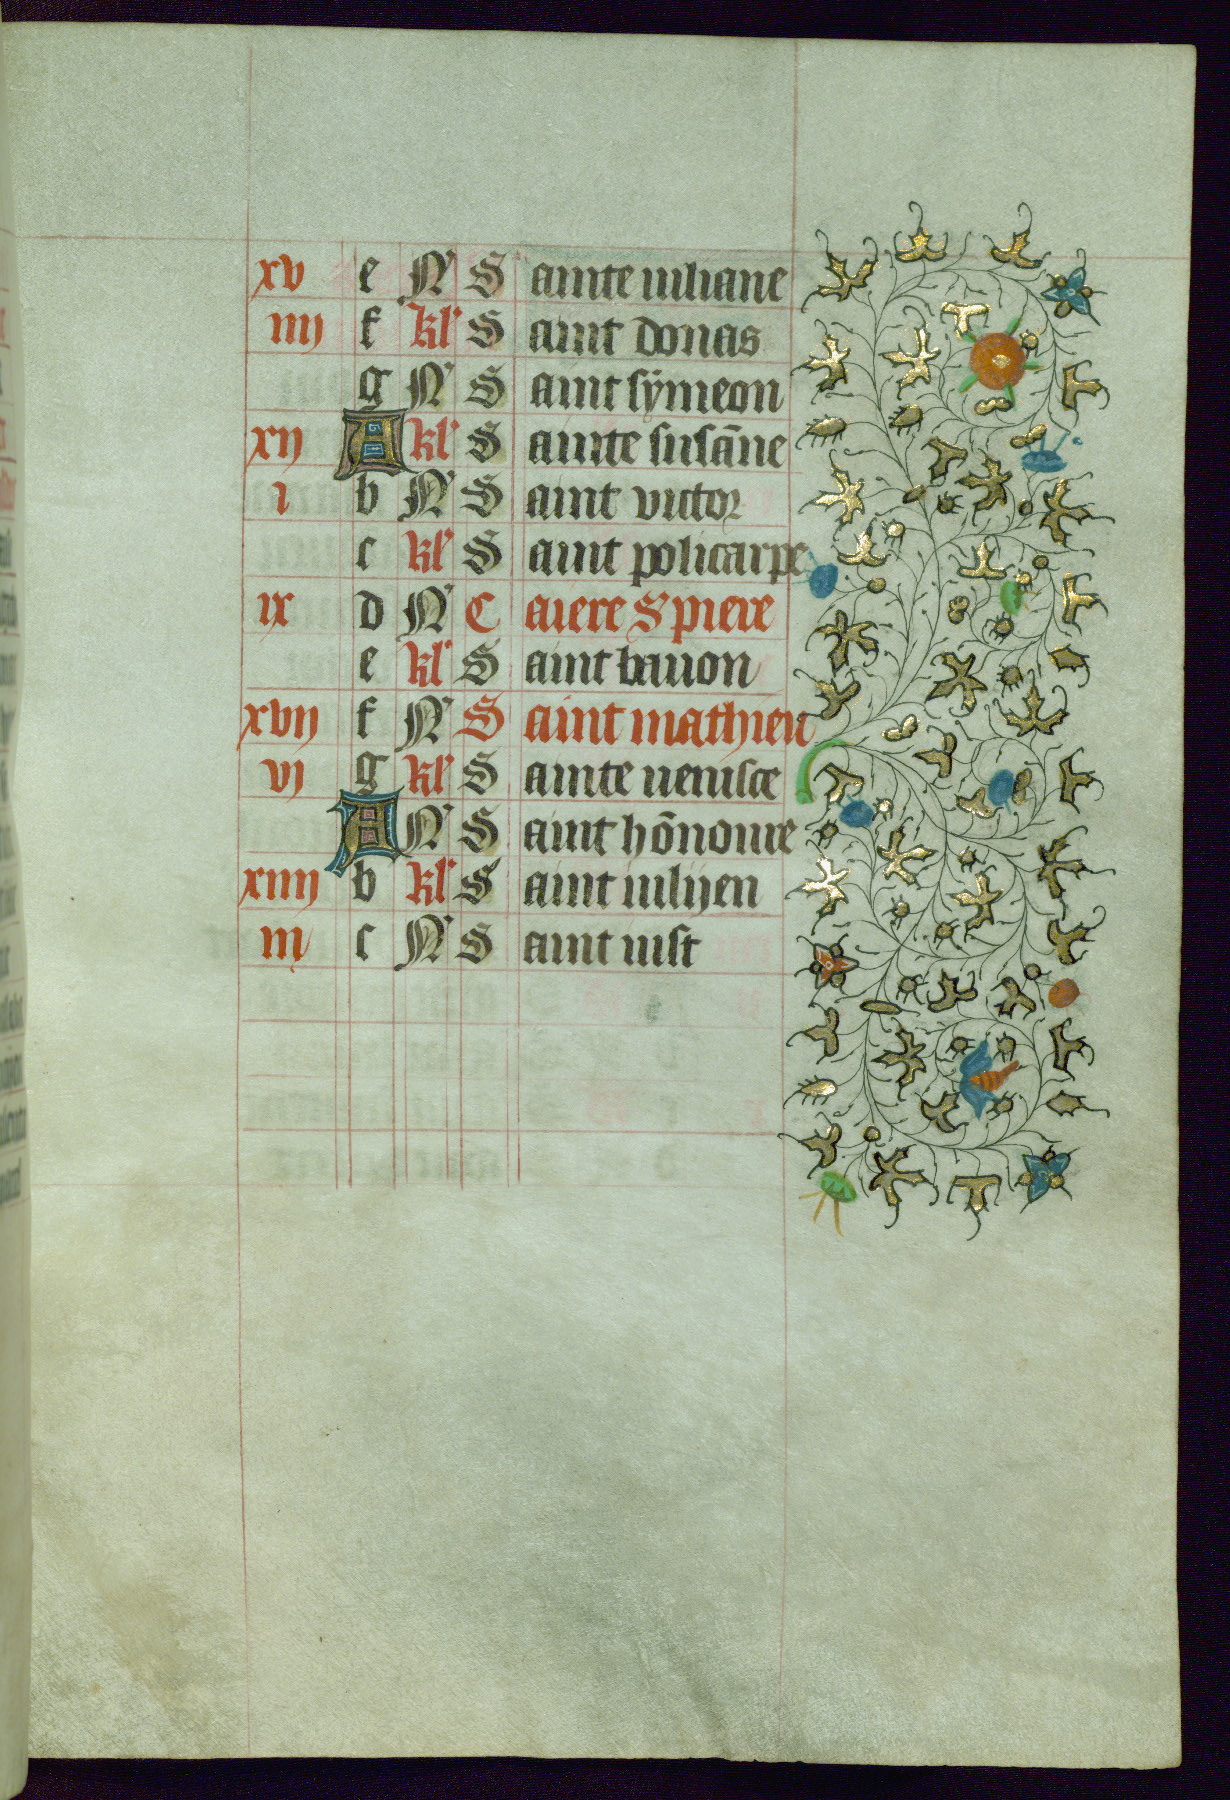 xv e N S ainte iuliane
iiij f kl' S aint donas
g N S aint symeon
xij A kl' S ainte susāne
i b N S aint victor
c kl' S aint policarpe
ix d N C aiere S piere
e kl' S aint bauon
xvij f N S aint mathieu
vi g kl' S ainte venisce
A N S aint hōnoure
xiiij b kl' S aint iulyen
iij c N S aint iust